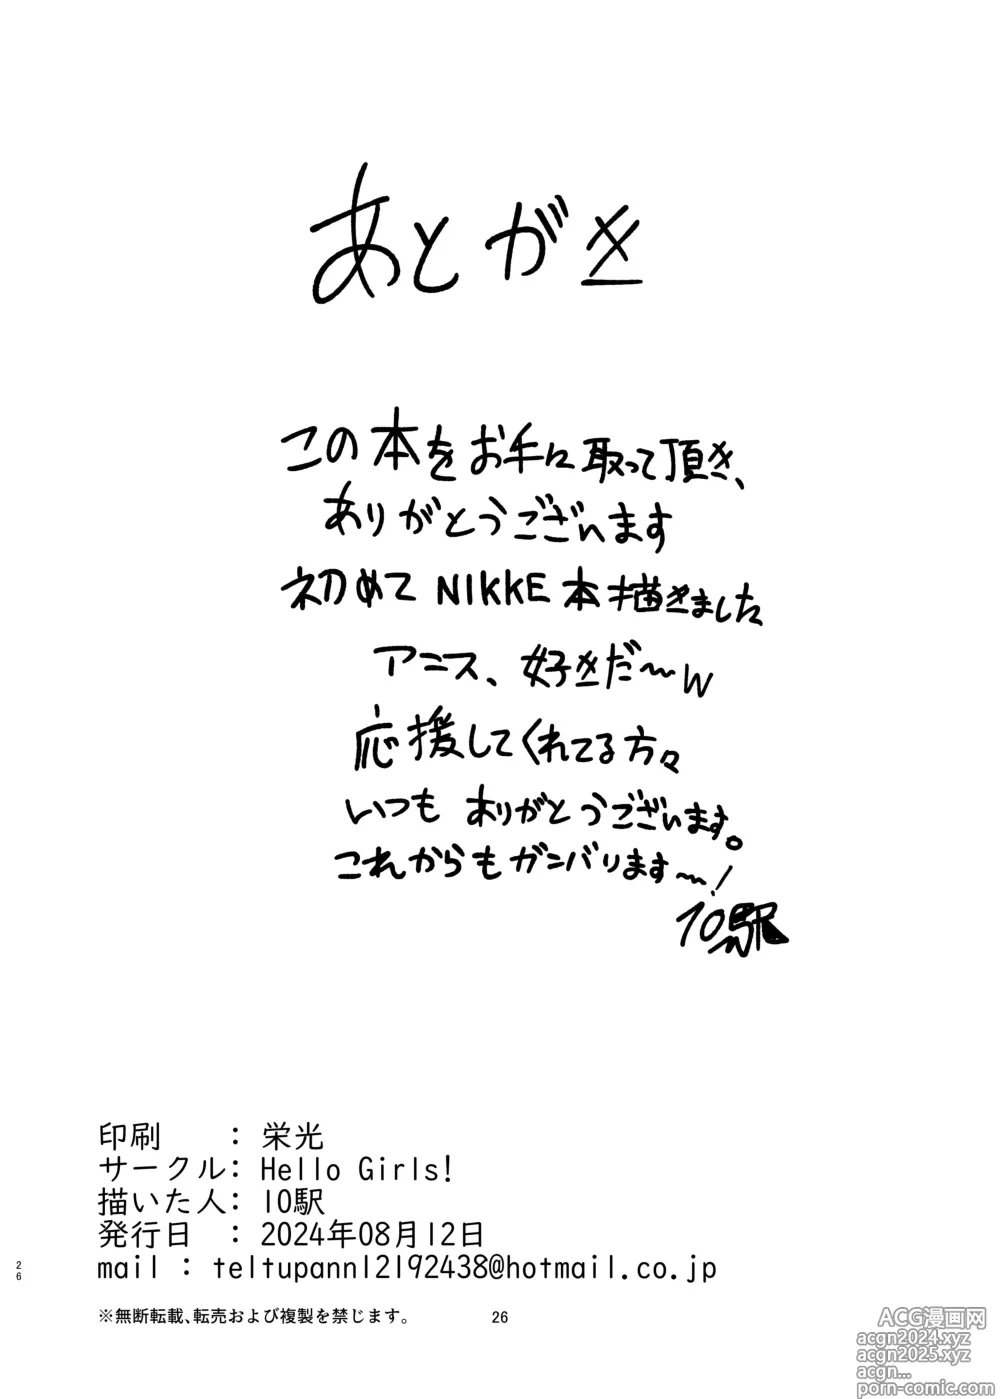 あとがき
この本をお手に取って頂き、
ありがとうございます
初めて NIKKE 本描きました
アニス、好きだ〜w
応援してくれてる方々
いつも ありがとうございます。
これからもガンバります〜!
10駅
印刷 : 栄光
サークル: Hello Girls!
描いた人: 10駅
発行日 : 2024年08月12日
mail : teltupann12192438@hotmail.co.jp
※無断転載、転売および複製を禁じます。
26
26
ACG漫画网
acgn2024.xyz
acgn2025.xyz
acgn...
porn-comic.com